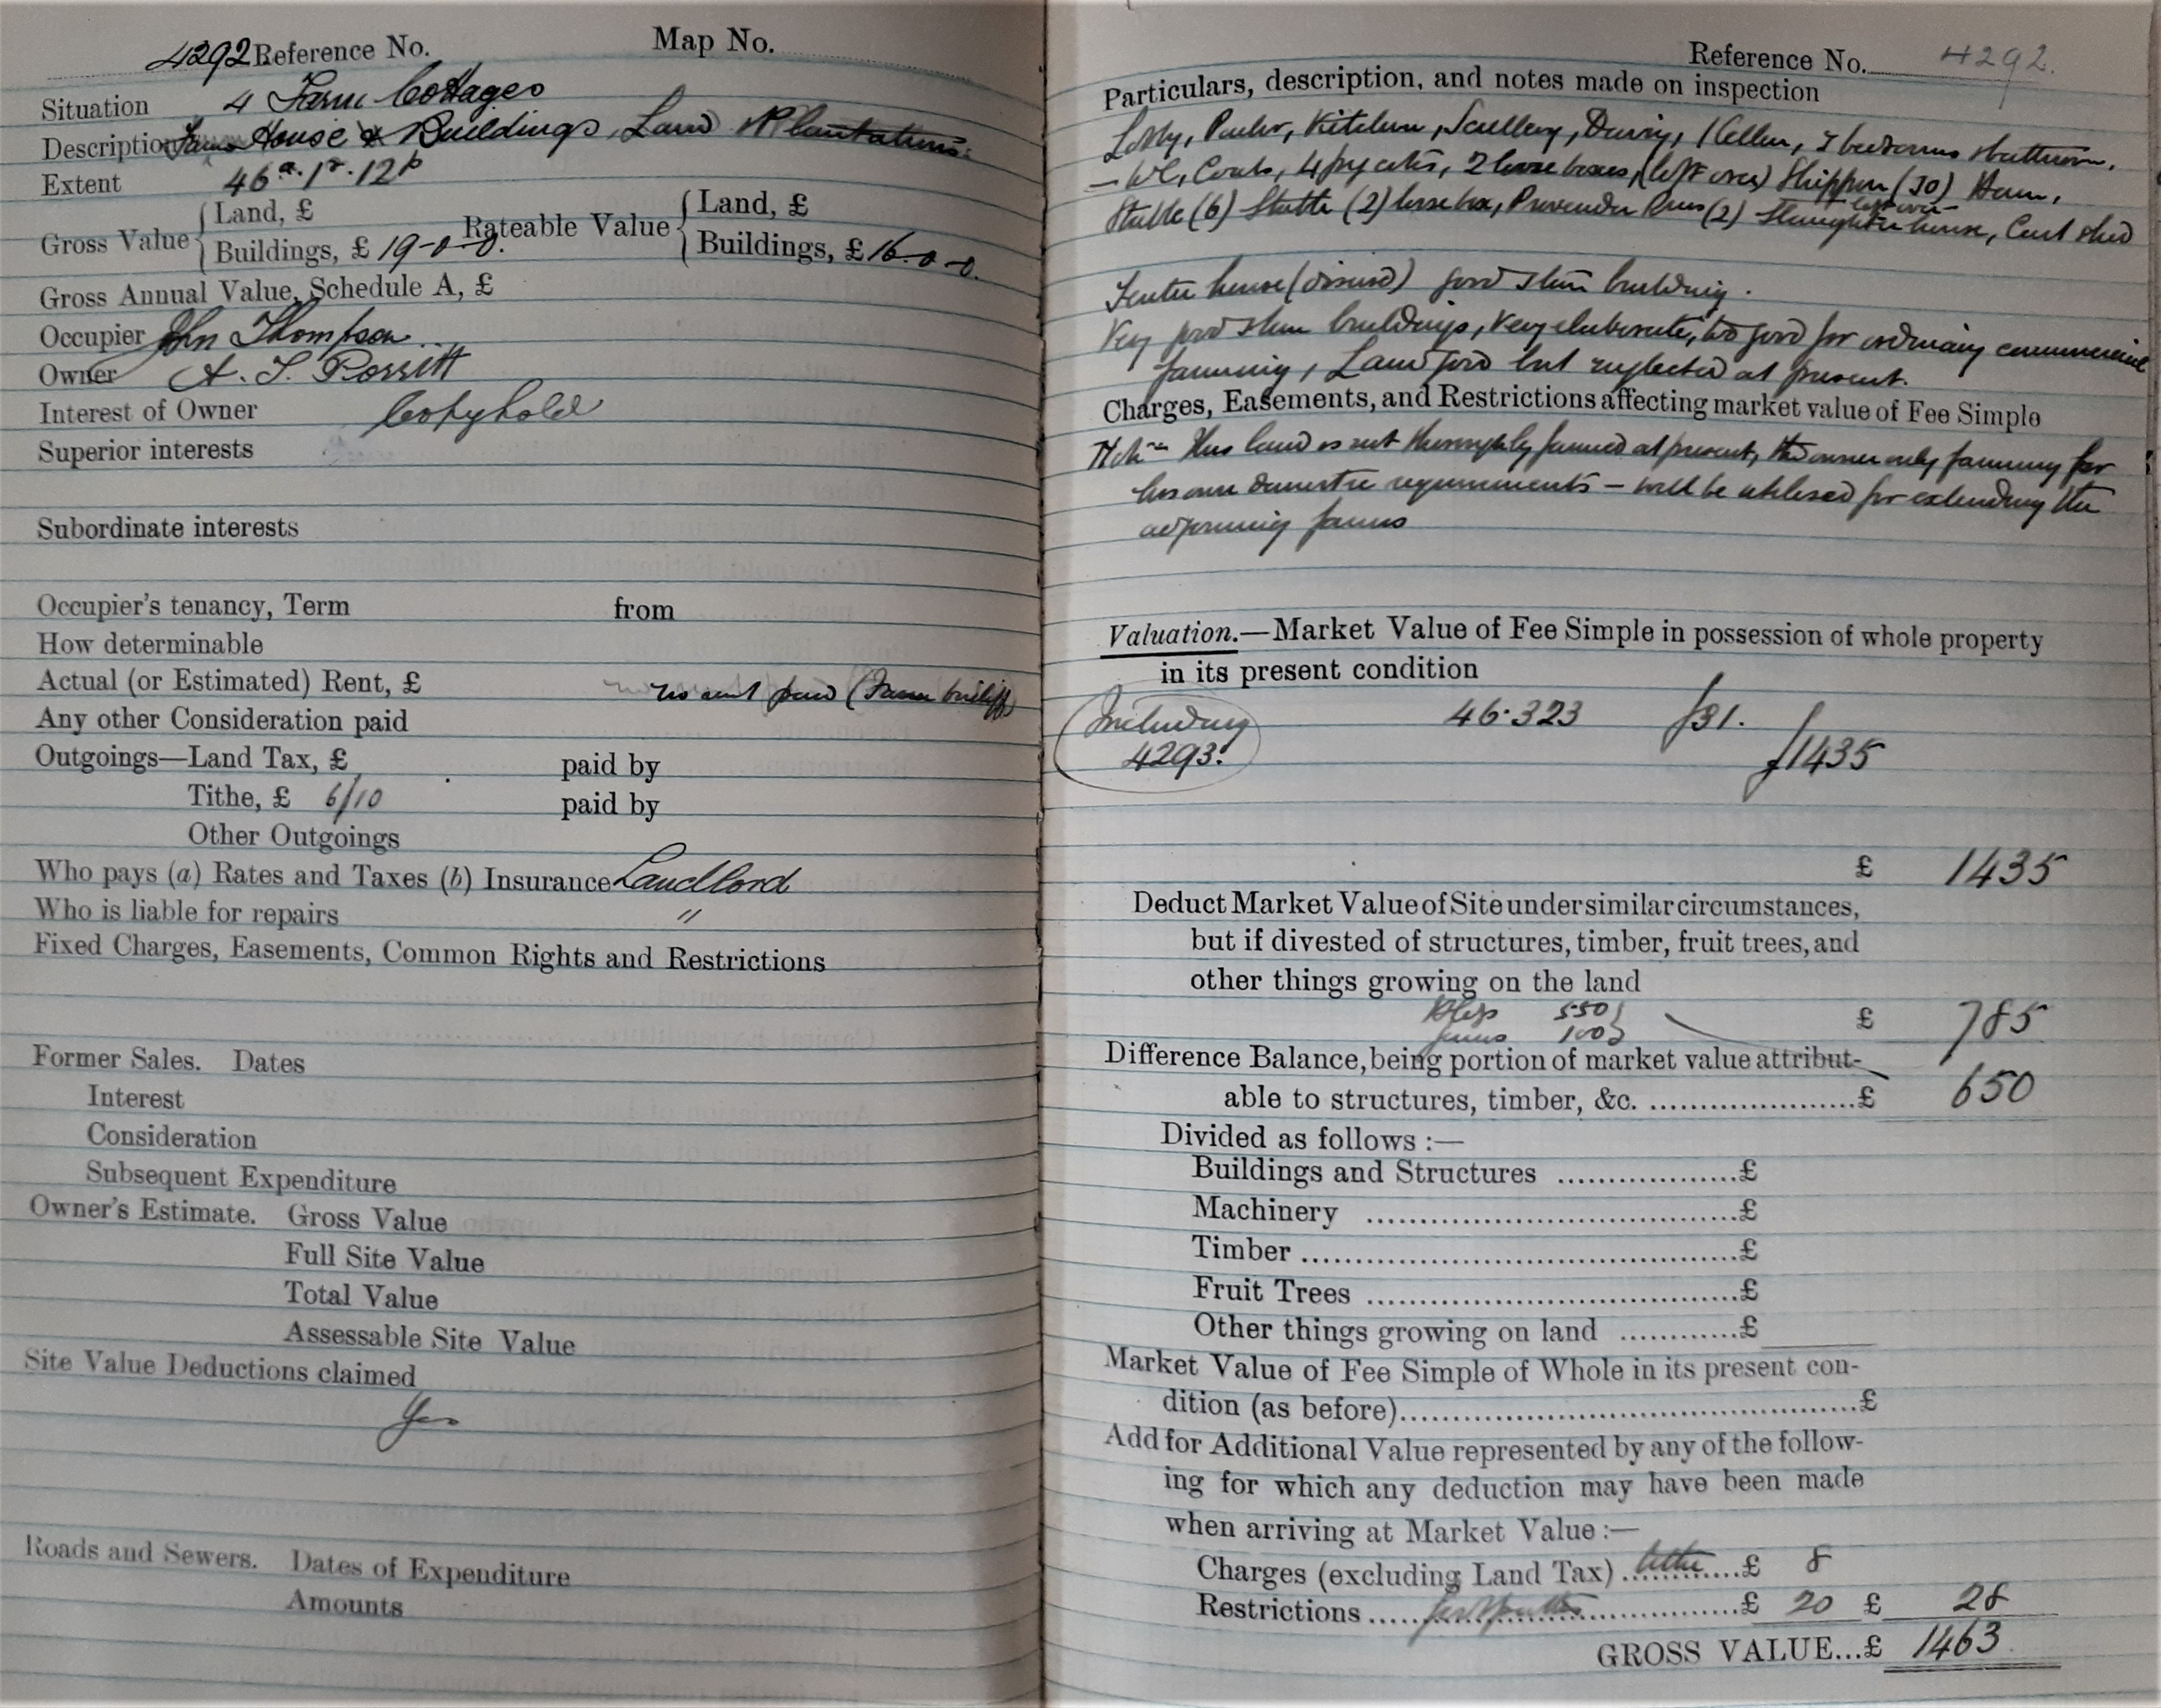 4292 Reference No. Map No.
Situation 4 Farm Cottages
Description Farm House & Buildings, Land & Plantations.
Extent 46a. 1r. 12p
Gross Value { Land, £ Rateable Value { Land, £
Buildings, £ 19-0-0. Buildings, £ 16-0-0.
Gross Annual Value, Schedule A, £
Occupier John Thompson
Owner A. T. Porritt
Interest of Owner Copyhold
Superior interests
Subordinate interests
Occupier's tenancy, Term from
How determinable
Actual (or Estimated) Rent, £ no rent paid (Farm bailiff)
Any other Consideration paid
Outgoings—Land Tax, £ paid by
Tithe, £ 6/10 paid by
Other Outgoings
Who pays (a) Rates and Taxes (b) Insurance Landlord
Who is liable for repairs "
Fixed Charges, Easements, Common Rights and Restrictions
Former Sales. Dates
Interest
Consideration
Subsequent Expenditure
Owner's Estimate. Gross Value
Full Site Value
Total Value
Assessable Site Value
Site Value Deductions claimed
Yes
Roads and Sewers. Dates of Expenditure
Amounts
Reference No. 4292.
Particulars, description, and notes made on inspection
Lobby, Parlor, Kitchen, Scullery, Dairy, 1 Cellar, 3 bedrooms & bathroom.
— WC, Coals, 4 pig cotes, 2 loose boxes, (loft over) Shippon (30) Barn,
Stable (6) Stable (2) loose box, Provender Rms (2) loft over Slaughter house, Cart shed
house (disused) good stone building.
Very good stone buildings, very elaborate, too good for ordinary commercial
farming, Land good but neglected at present.
Charges, Easements, and Restrictions affecting market value of Fee Simple
Note This land is not thoroughly farmed at present, the owner only farming for
his own domestic requirements — will be utilised for extending the
adjoining farms
Valuation.—Market Value of Fee Simple in possession of whole property
in its present condition
Including 46·323 £31.
4293. £1435
£ 1435
Deduct Market Value of Site under similar circumstances,
but if divested of structures, timber, fruit trees, and
other things growing on the land
Bldgs 550 } £ 785
100 }
Difference Balance, being portion of market value attribut-
able to structures, timber, &c. ......................£ 650
Divided as follows :—
Buildings and Structures ...................£
Machinery .......................................£
Timber .............................................£
Fruit Trees .......................................£
Other things growing on land ............£
Market Value of Fee Simple of Whole in its present con-
dition (as before)................................................£
Add for Additional Value represented by any of the follow-
ing for which any deduction may have been made
when arriving at Market Value :—
Charges (excluding Land Tax) tithe £ 8
Restrictions ......£ 20 £ 28
GROSS VALUE...£ 1463